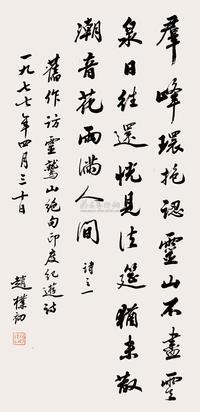 群峰環抱認靈山不盡靈
泉日往還恍見法筵猶未散
潮音花雨滿人間 詩之一
舊作訪靈鷲山絕句印度紀遊詩
一九七七年四月三十日
趙樸初